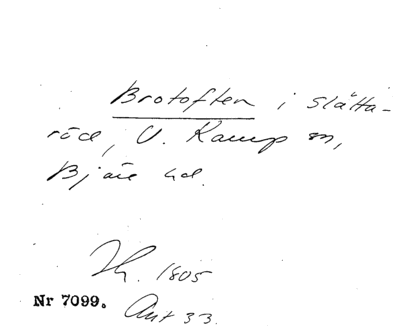 Brotoften i Slätta-
röd, V. Karup sn,
Bjäre hd.
Th. 1805
Nr 7099. Akt 33.